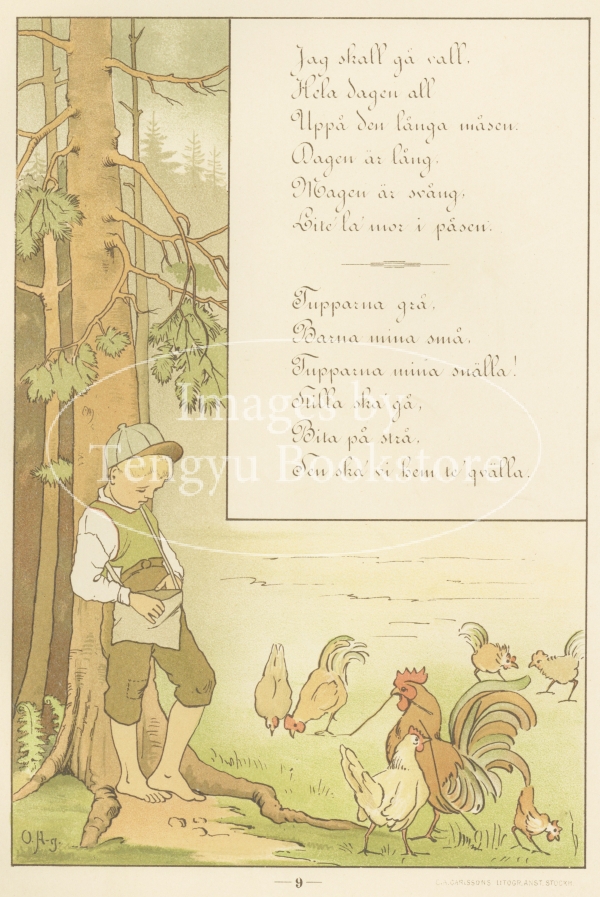 Jag skall gå vall,
Hela dagen all
Uppå den långa måsen.
Dagen är lång,
Magen är svång,
Lite la' mor i påsen.
Tupparna grå,
Barna mina små,
Tupparna mina snälla!
Stilla ska gå,
Bita på strå,
Sen ska vi hem te' qvälla.
Images by
Tengyu Bookstore
O.A-g.
— 9 —
CARLSSONS LITOGR. ANST. STOCKH.